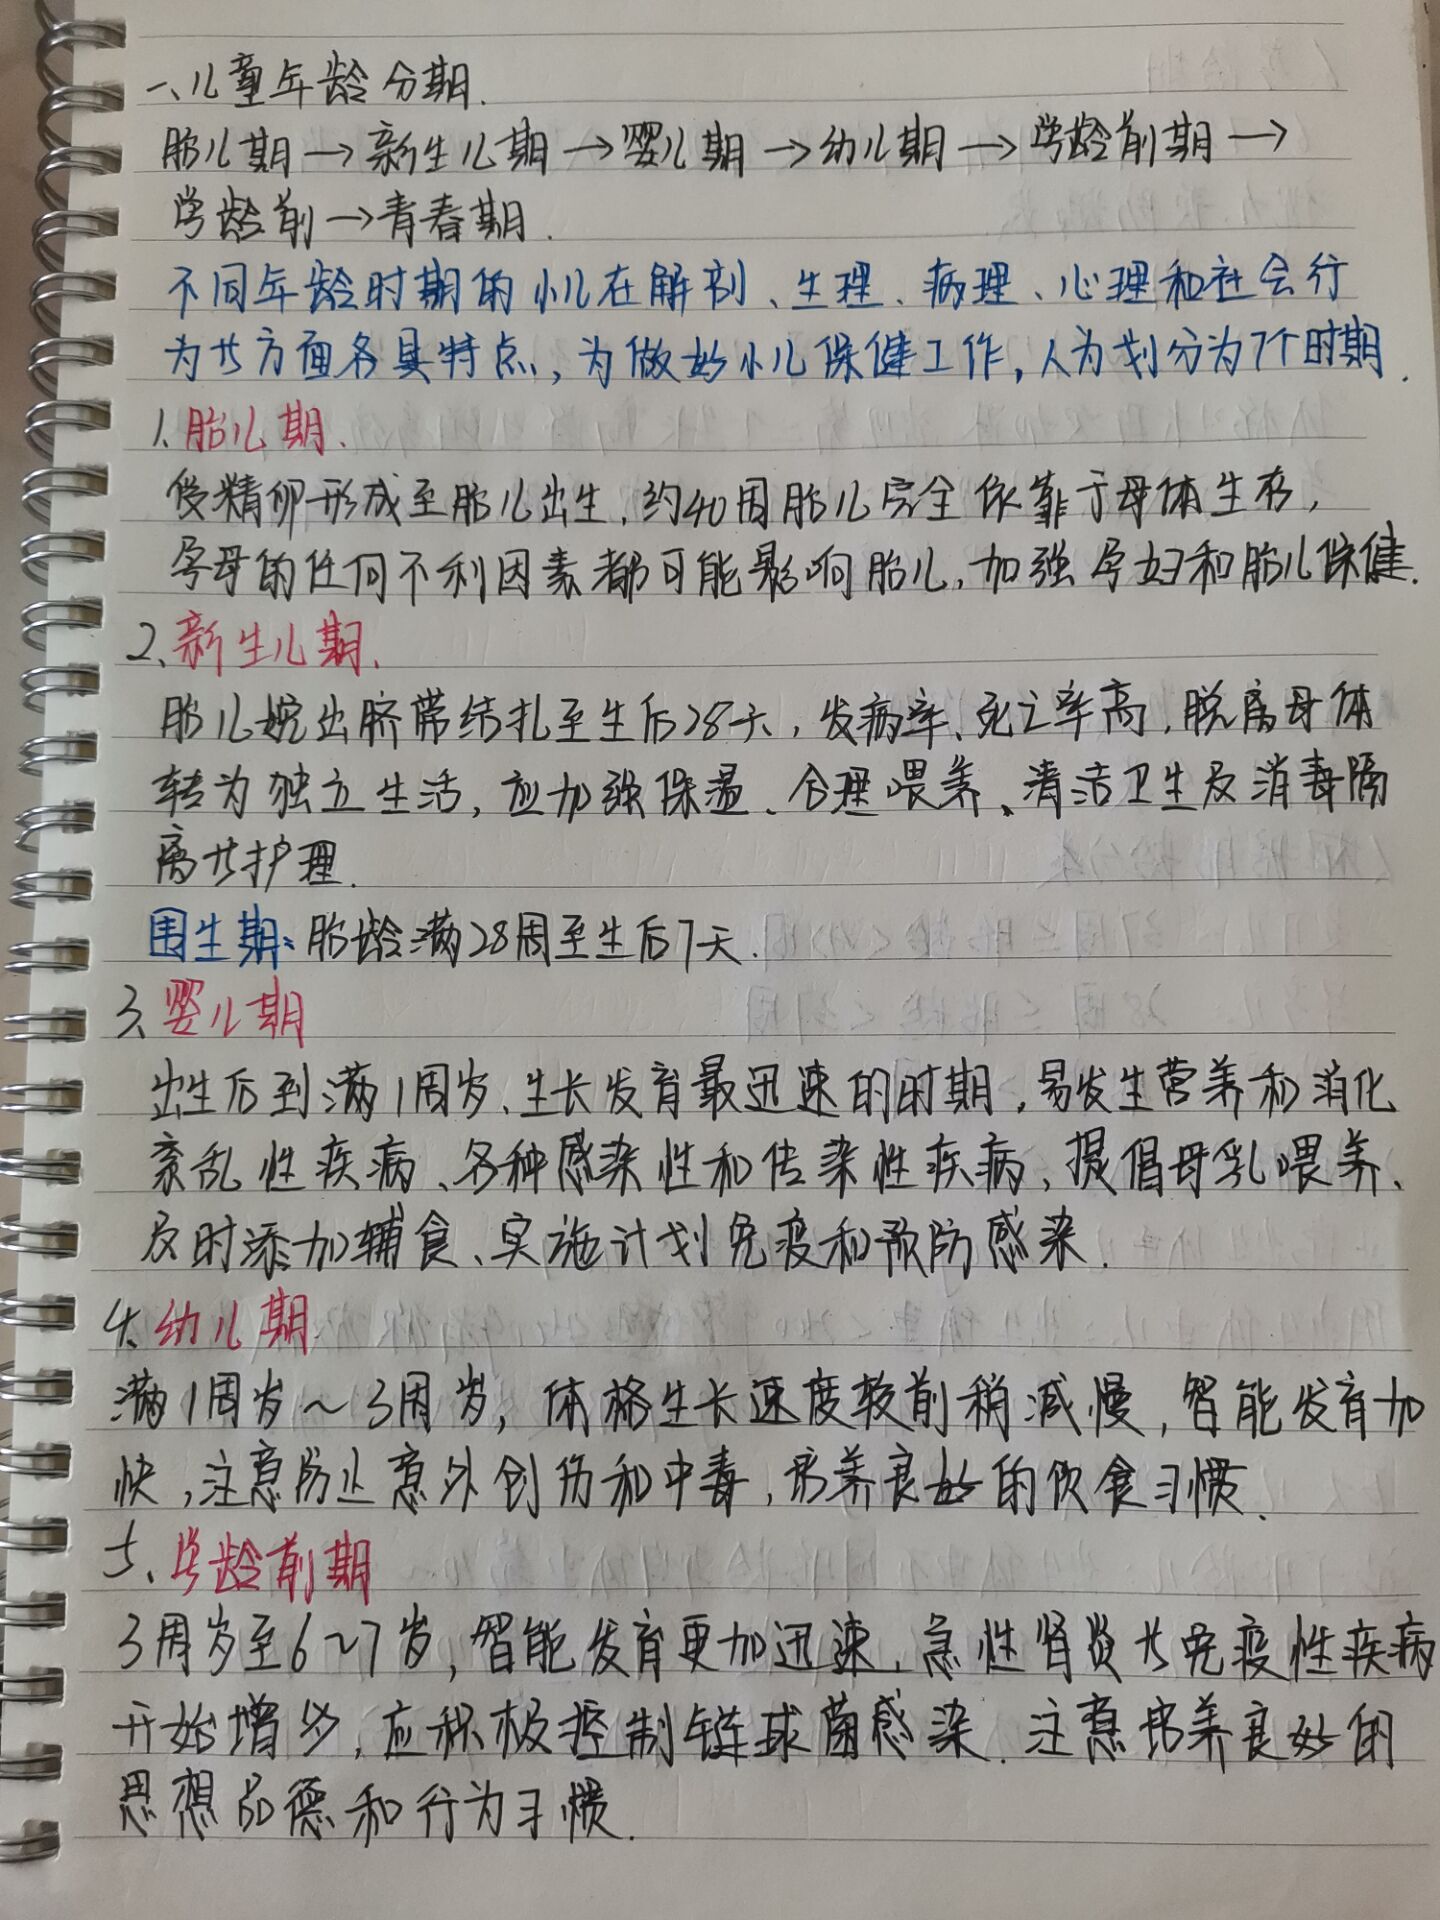 一、儿童年龄分期.
胎儿期→新生儿期→婴儿期→幼儿期→学龄前期→
学龄前→青春期.
不同年龄时期的小儿在解剖、生理、病理、心理和社会行
为等方面各具特点,为做好小儿保健工作,人为划分为7个时期.
1.胎儿期.
受精卵形成至胎儿出生,约40周胎儿完全依靠于母体生存,
孕母的任何不利因素都可能影响胎儿,加强孕妇和胎儿保健.
2.新生儿期.
胎儿娩出脐带结扎至生后28天,发病率、死亡率高,脱离母体
转为独立生活,应加强保温、合理喂养、清洁卫生及消毒隔
离等护理.
围生期:胎龄满28周至生后7天.
3.婴儿期
出生后到满1周岁、生长发育最迅速的时期,易发生营养和消化
紊乱性疾病、各种感染性和传染性疾病,提倡母乳喂养、
及时添加辅食、实施计划免疫和预防感染.
4.幼儿期
满1周岁~3周岁,体格生长速度较前稍减慢,智能发育加
快,注意防止意外创伤和中毒,培养良好的饮食习惯.
5.学龄前期
3周岁至6~7岁,智能发育更加迅速,急性肾炎等免疫性疾病
开始增多,应积极控制链球菌感染.注意培养良好的
思想品德和行为习惯.